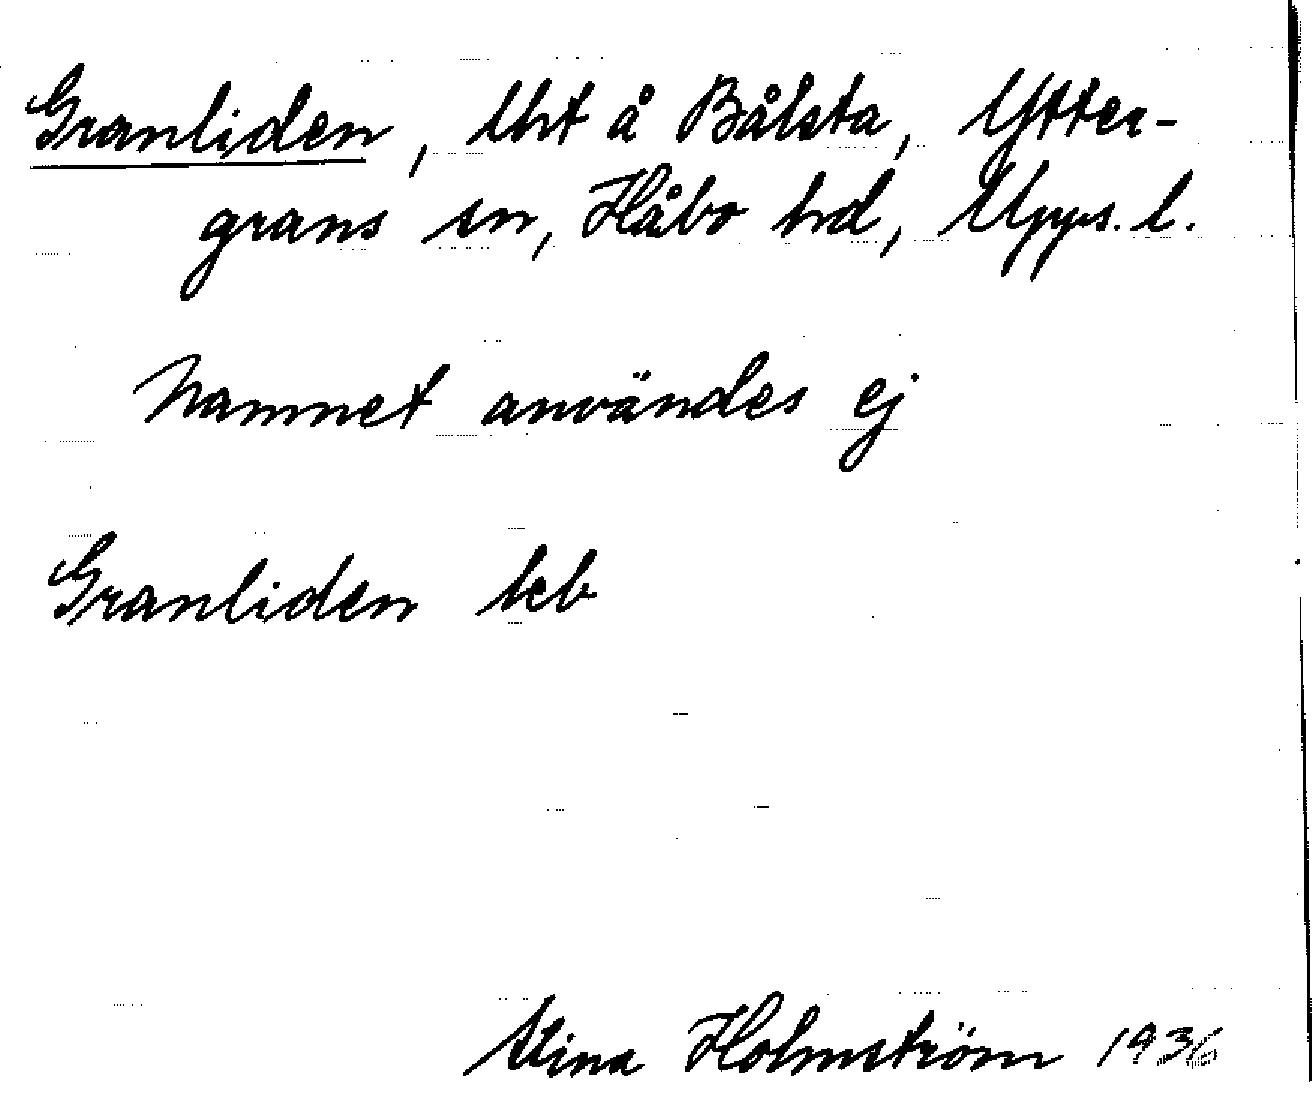 Granliden, lht å Bålsta, Ytter-
grans sn, Håbo hd, Upps. l.
Namnet användes ej
Granliden jeb
Stina Holmström 1936